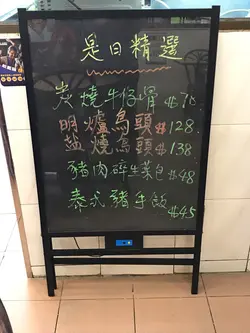 是日精選
炭燒牛仔骨 $78
明爐烏頭 $128
鹽燒烏頭 $138
豬肉碎生菜包 $48
泰式豬手飯 $45